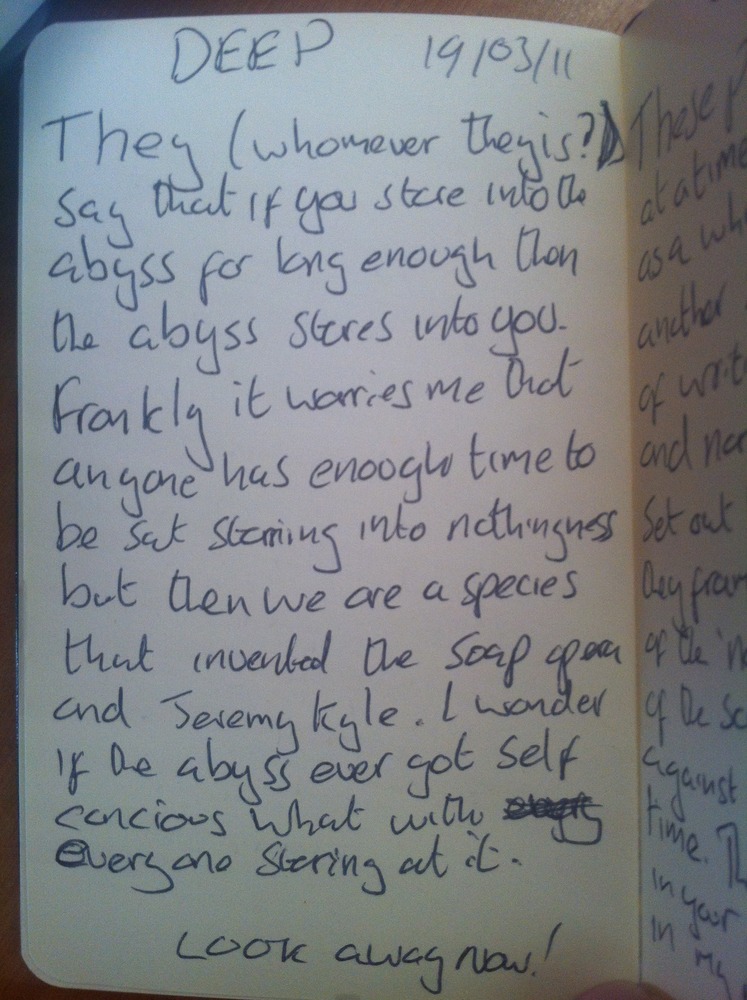 DEEP 19/03/11
They (whomever they is?)
say that if you stare into the
abyss for long enough then
the abyss stares into you.
Frankly it worries me that
anyone has enough time to
be sat starring into nothingness
but then we are a species
that invented the soap opera
and Jeremy Kyle. I wonder
if the abyss ever got self
concious what with
everyone staring at it.
Look away now!
These
at a time
as a
another
of
and
Set out
they
of the
of the
against
time.
in your
in my